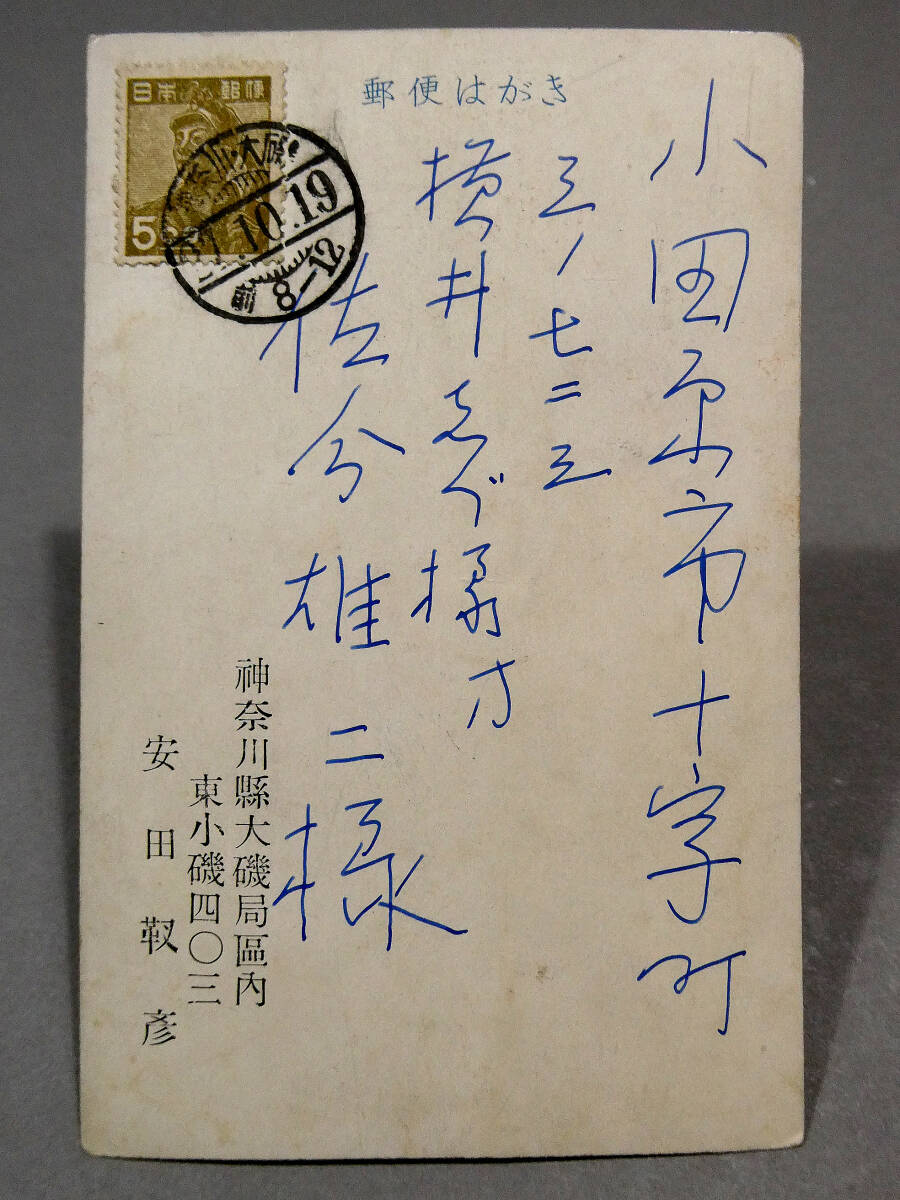 郵便はがき
小田原市十字町
三ノ七二三
横井志げ様方
佐分雄二様
神奈川縣大磯局區內
東小磯四〇三
安田靫彦
日本郵便
神奈川・大磯
37.10.19
前8-12